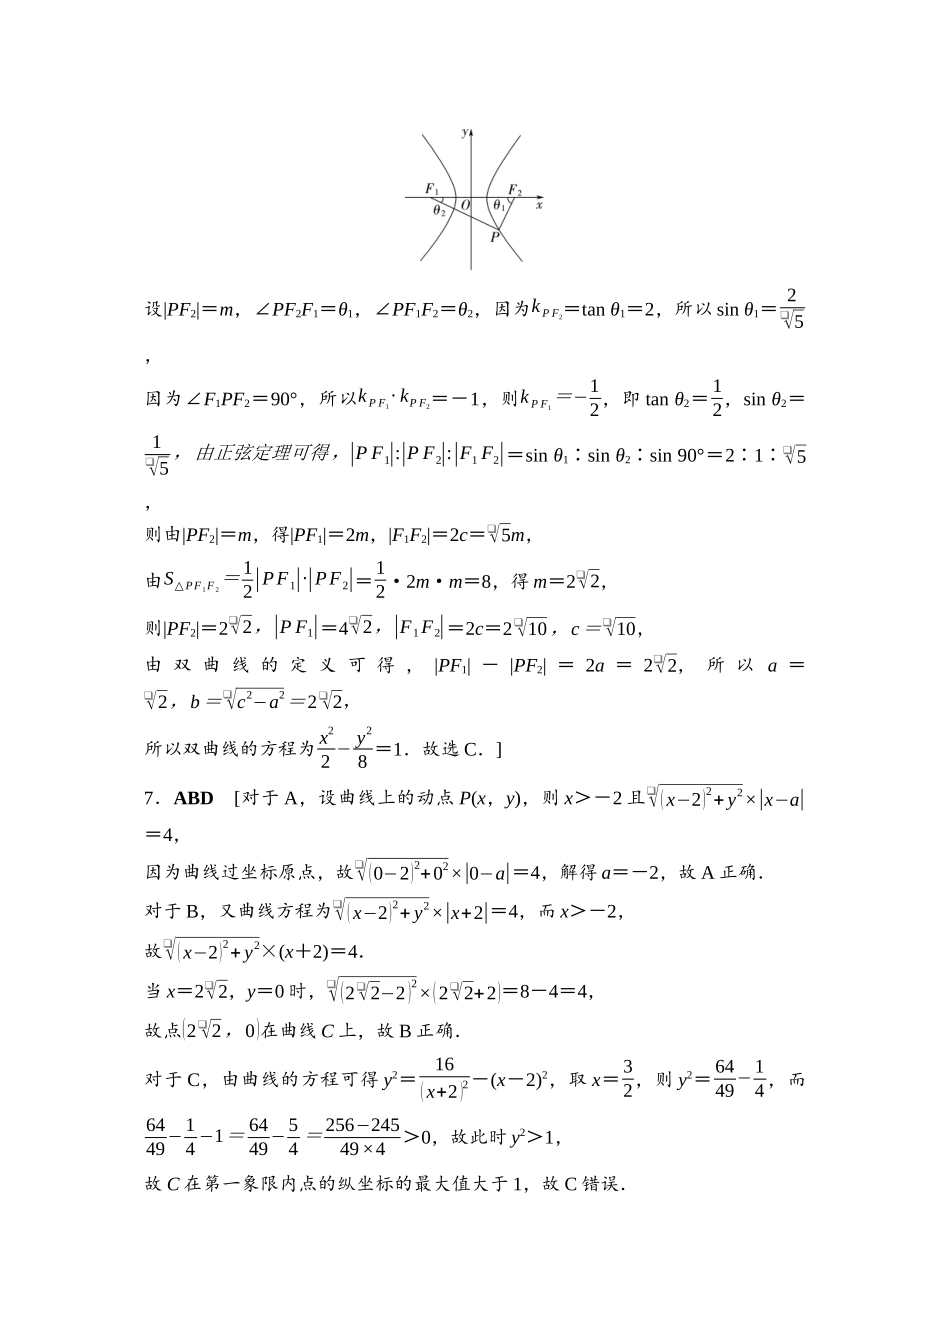 y
F₁ F₂
θ₂ O θ₁ x
P
设|PF₂|＝m，∠PF₂F₁＝θ₁，∠PF₁F₂＝θ₂，因为k_{PF₂}＝tan θ₁＝2，所以 sin θ₁＝2/√5
，
因为∠F₁PF₂＝90°，所以k_{PF₁}·k_{PF₂}＝－1，则k_{PF₁}＝−1/2，即 tan θ₂＝1/2，sin θ₂＝
1/√5，由正弦定理可得，|PF₁|:|PF₂|:|F₁F₂|＝sin θ₁∶sin θ₂∶sin 90°＝2∶1∶√5
，
则由|PF₂|＝m，得|PF₁|＝2m，|F₁F₂|＝2c＝√5m，
由S_{△PF₁F₂}＝1/2|PF₁|·|PF₂|＝1/2·2m·m＝8，得 m＝2√2，
则|PF₂|＝2√2，|PF₁|＝4√2，|F₁F₂|＝2c＝2√10，c＝√10，
由双曲线的定义可得，|PF₁|－|PF₂|＝2a＝2√2，所以 a＝
√2，b＝√(c²−a²)＝2√2，
所以双曲线的方程为x²/2−y²/8＝1．故选 C．]
7．ABD [对于 A，设曲线上的动点 P(x，y)，则 x＞－2 且√((x−2)²+y²)×|x−a|
＝4，
因为曲线过坐标原点，故√((0−2)²+0²)×|0−a|＝4，解得 a＝－2，故 A 正确．
对于 B，又曲线方程为√((x−2)²+y²)×|x+2|＝4，而 x＞－2，
故√((x−2)²+y²)×(x＋2)＝4．
当 x＝2√2，y＝0 时，√((2√2−2)²)×(2√2+2)＝8－4＝4，
故点(2√2，0)在曲线 C 上，故 B 正确．
对于 C，由曲线的方程可得 y²＝16/(x+2)²－(x－2)²，取 x＝3/2，则 y²＝64/49−1/4，而
64/49−1/4−1＝64/49−5/4＝(256−245)/(49×4)＞0，故此时 y²＞1，
故 C 在第一象限内点的纵坐标的最大值大于 1，故 C 错误．